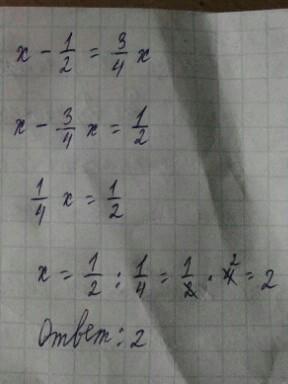 x - 1/2 = 3/4 x
x - 3/4 x = 1/2
1/4 x = 1/2
x = 1/2 : 1/4 = 1/2 · 4 2 = 2
Ответ: 2